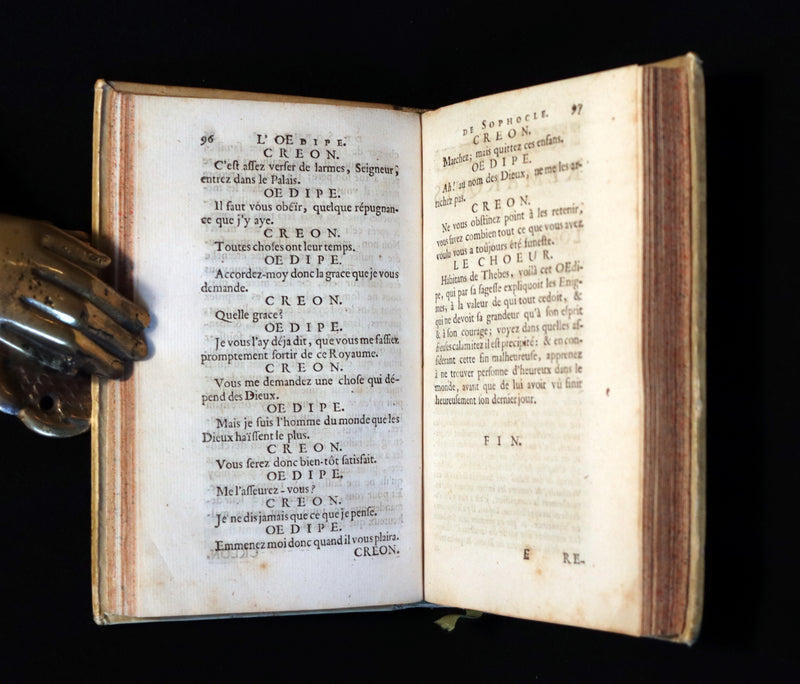 96 L' OEDIPE.
CREON.
C'eſt aſſez verſer de larmes, Seigneur,
entrez dans le Palais.
OEDIPE.
Il faut vous obeïr, quelque répugnan-
ce que j'y aye.
CREON.
Toutes choſes ont leur temps.
OEDIPE.
Accordez-moy donc la grace que je vous
demande.
CREON.
Quelle grace?
OEDIPE.
Je vous l'ay déja dit, que vous me faſſiez
promptement ſortir de ce Royaume.
CREON.
Vous me demandez une choſe qui dé-
pend des Dieux.
OEDIPE.
Mais je ſuis l'homme du monde que les
Dieux haïſſent le plus.
CREON.
Vous ſerez donc bien-tôt ſatisfait.
OEDIPE.
Me l'aſſeurez-vous?
CREON.
Je ne dis jamais que ce que je penſe.
OEDIPE.
Emmenez moi donc quand il vous plaira.
CREON.
DE SOPHOCLE. 97
CREON.
Marchez; mais quittez ces enfans.
OEDIPE.
Ah! au nom des Dieux, ne me les ar-
rachez pas.
CREON.
Ne vous obſtinez point à les retenir,
vous ſavez combien tout ce que vous avez
voulu vous a toûjours été funeſte.
LE CHOEUR.
Habitans de Thebes, voilà cet OEdi-
pe, qui par ſa ſageſſe expliquoit les Enig-
mes, à la valeur de qui tout cedoit, &
qui ne devoit ſa grandeur qu'à ſon eſprit
& à ſon courage; voyez dans quelles af-
freuſes calamitez il eſt precipité: & en con-
ſiderant cette fin malheureuſe, apprenez
à ne trouver perſonne d'heureux dans le
monde, avant que de lui avoir vû finir
heureuſement ſon dernier jour.
FIN.
E RE-